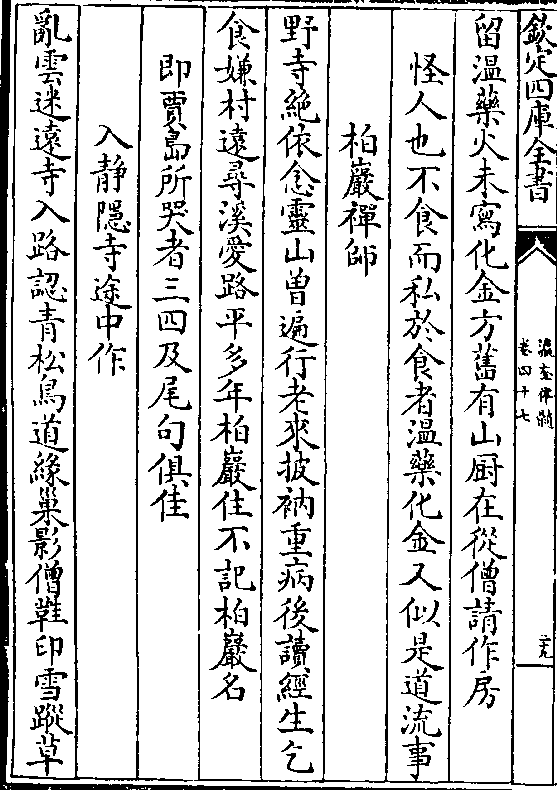 欽定四庫全書
瀛奎律髓
卷四十七
二九
留温藥火未寫化金方舊有山厨在從僧請作房
怪人也不食而私於食者温藥化金又似是道流事
柏巖禪師
野寺絶依念靈山曽遍行老來披衲重病後讀經生乞
食嫌村遠尋溪愛路平多年柏巖住不記柏巖名
即賈島所哭者三四及尾句俱佳
入静隱寺途中作
亂雲迷遠寺入路認青松鳥道緣巢影僧鞋印雪蹤草